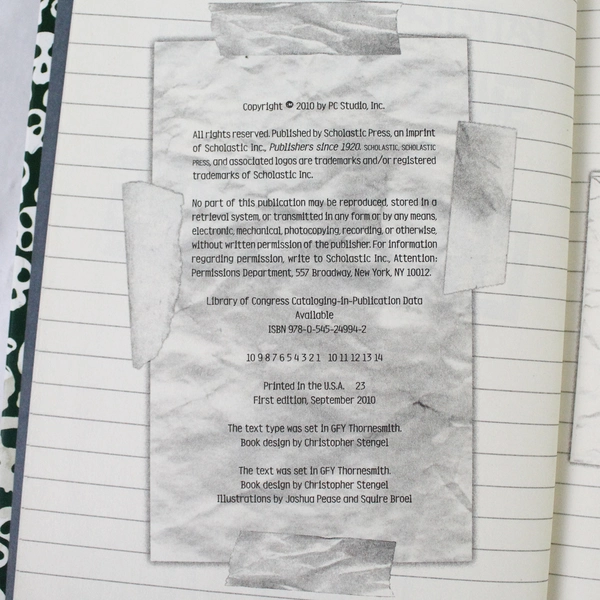 Copyright © 2010 by PC Studio, Inc.
All rights reserved. Published by Scholastic Press, an imprint
of Scholastic Inc., Publishers since 1920. SCHOLASTIC, SCHOLASTIC
PRESS, and associated logos are trademarks and/or registered
trademarks of Scholastic Inc.
No part of this publication may be reproduced, stored in a
retrieval system, or transmitted in any form or by any means,
electronic, mechanical, photocopying, recording, or otherwise,
without written permission of the publisher. For information
regarding permission, write to Scholastic Inc., Attention:
Permissions Department, 557 Broadway, New York, NY 10012.
Library of Congress Cataloging-in-Publication Data
Available
ISBN 978-0-545-24994-2
10 9 8 7 6 5 4 3 2 1 10 11 12 13 14
Printed in the U.S.A. 23
First edition, September 2010
The text type was set in GFY Thornesmith.
Book design by Christopher Stengel
The text was set in GFY Thornesmith.
Book design by Christopher Stengel
Illustrations by Joshua Pease and Squire Broel